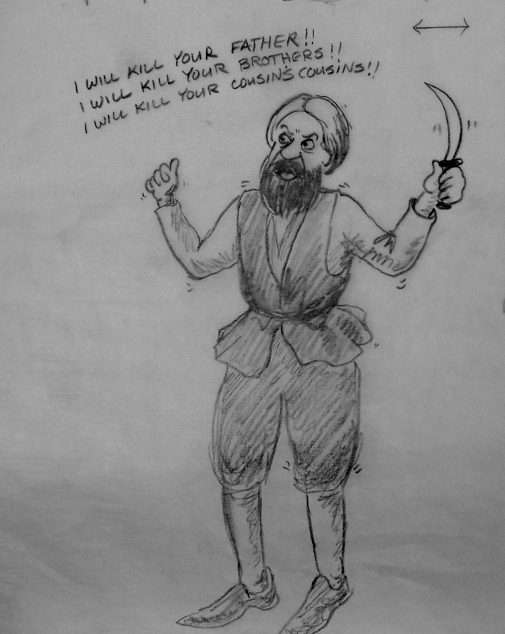 I WILL KILL YOUR FATHER!!
I WILL KILL YOUR BROTHERS!!
I WILL KILL YOUR COUSIN'S COUSINS!!